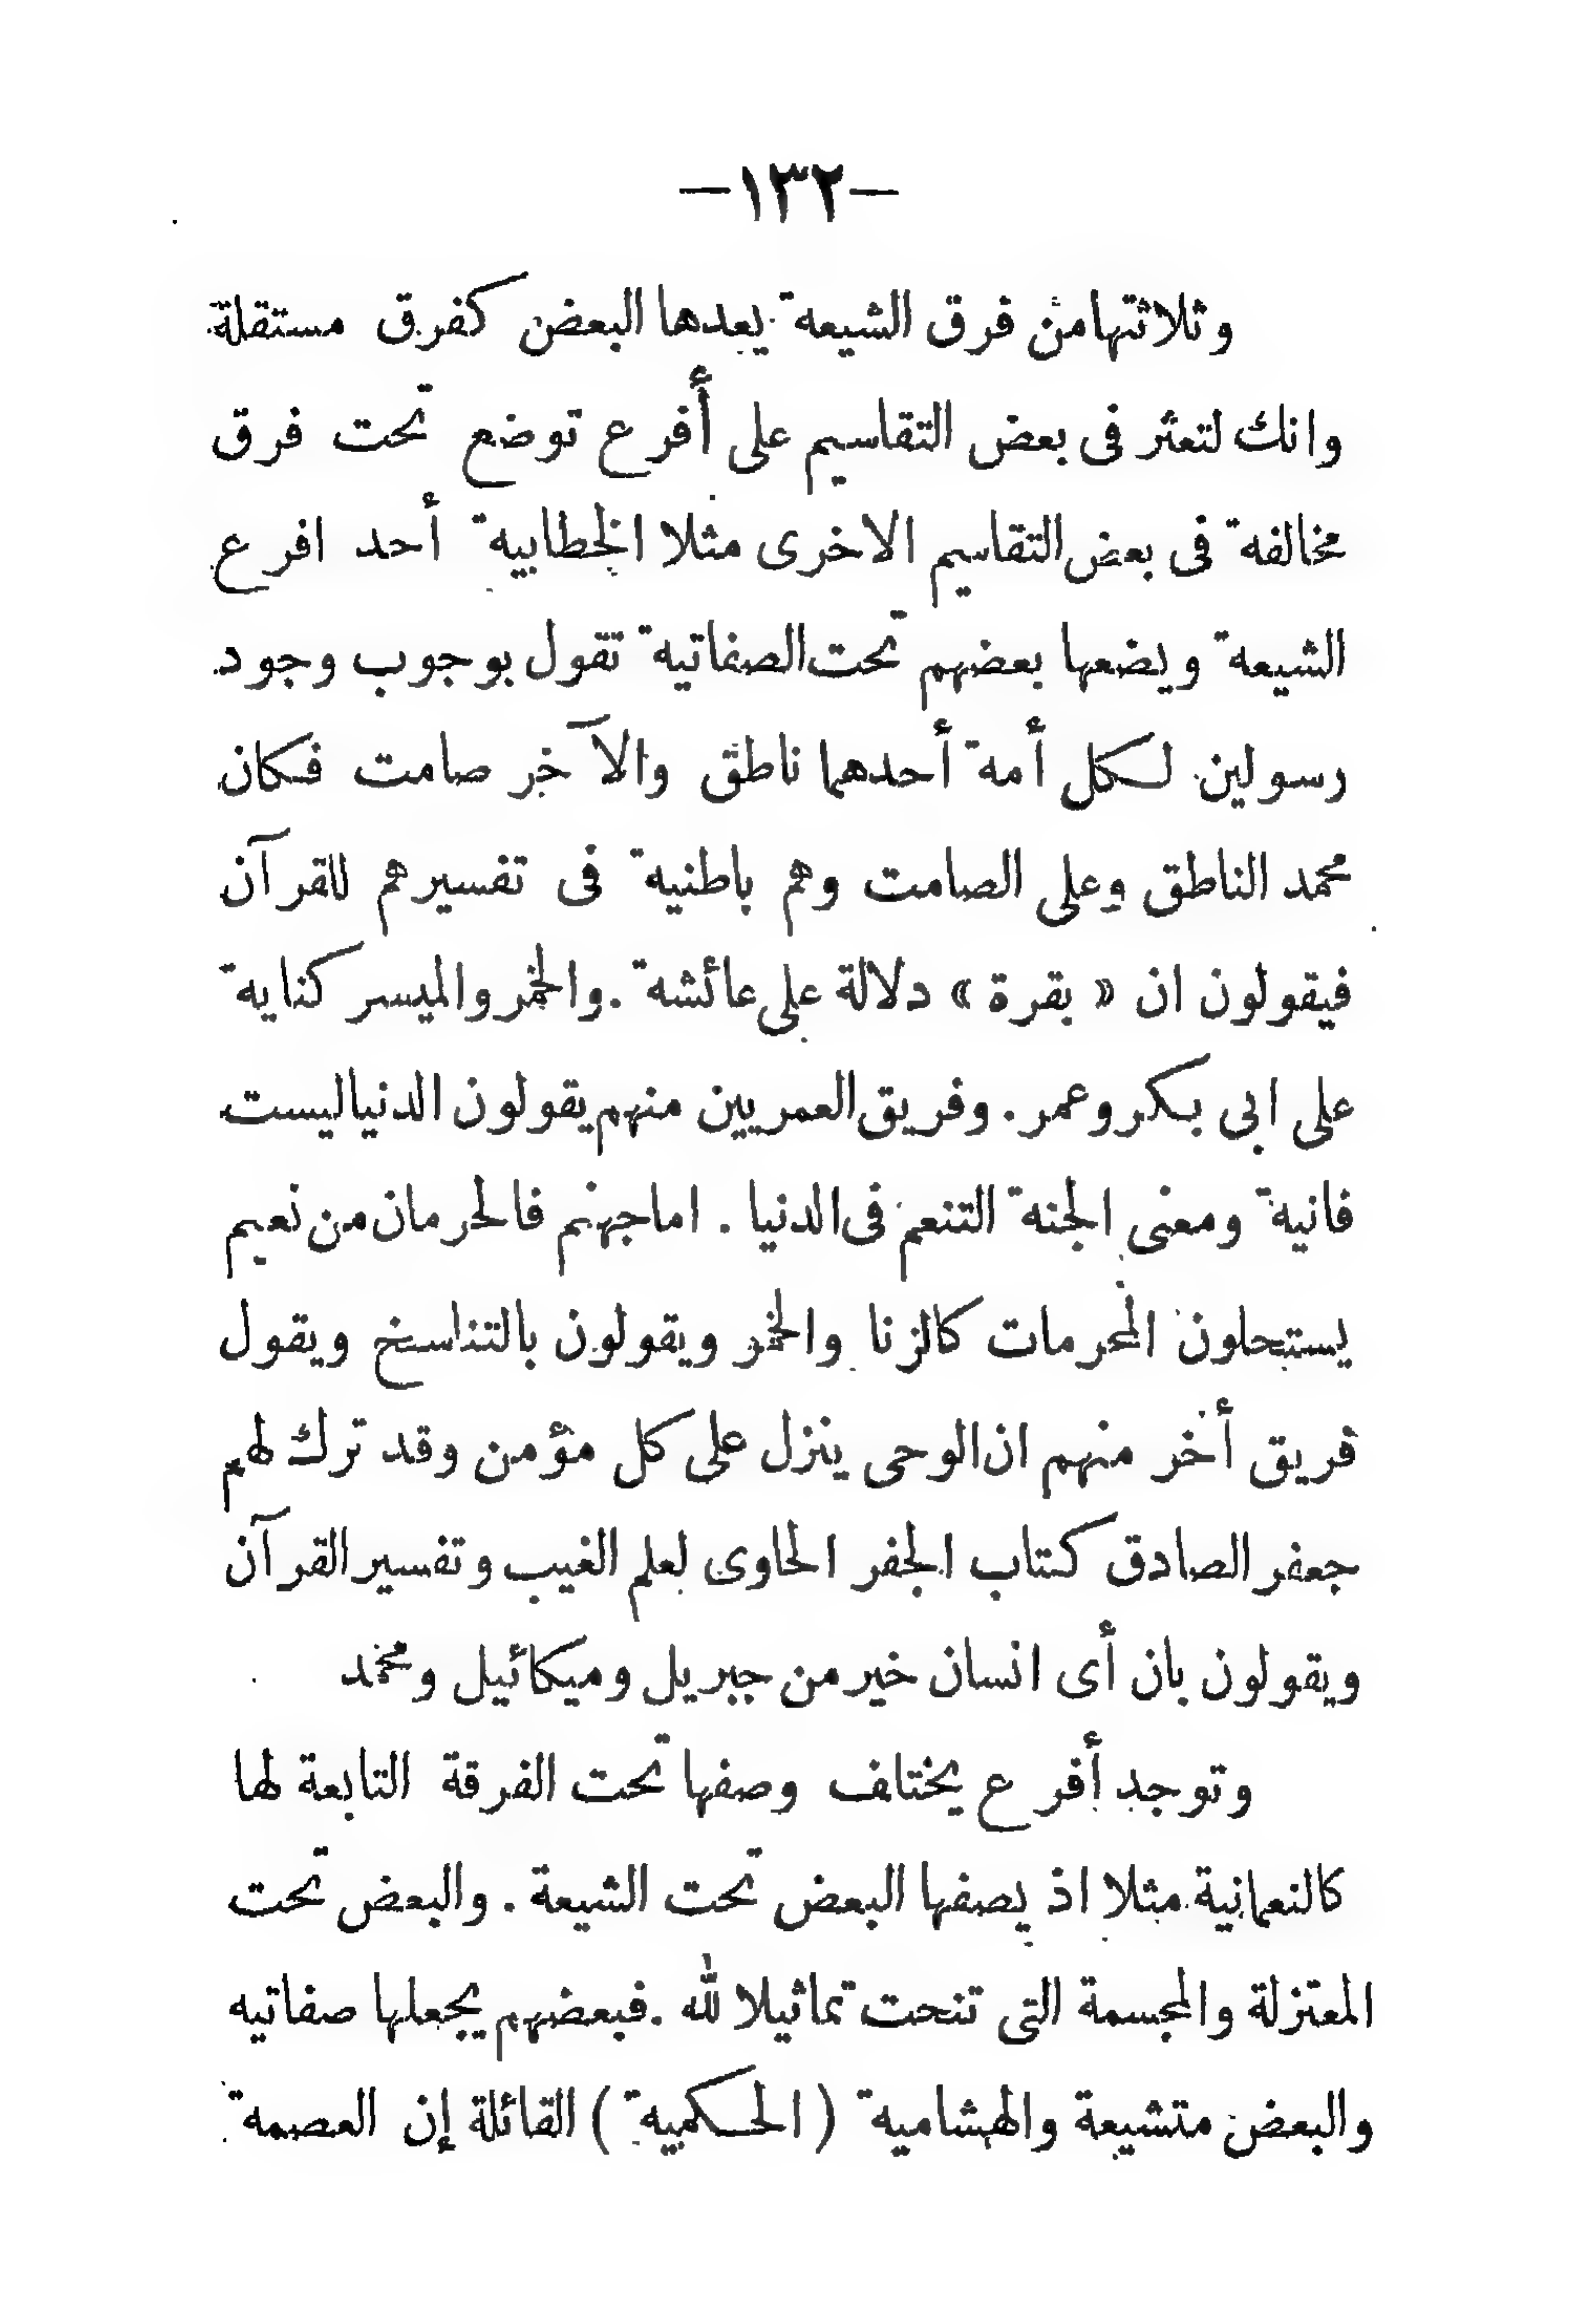 —١٣٢—
وثلاثتها من فرق الشيعة يعدها البعض كفرق مستقلة
وانك لتعثر فى بعض التقاسيم على أفرع توضع تحت فرق
مخالفة فى بعض التقاسيم الاخرى مثلا الخطابية أحد افرع
الشيعة ويضعها بعضهم تحت الصفاتية تقول بوجوب وجود
رسولين لكل أمة أحدهما ناطق والآخر صامت فكان
محمد الناطق وعلى الصامت وهم باطنية فى تفسيرهم للقرآن
فيقولون ان « بقرة » دلالة على عائشة . والخمر والميسر كناية
على ابى بكر وعمر . وفريق العمريين منهم يقولون الدنيا ليست
فانية ومعنى الجنة التنعم فى الدنيا . اما جهنم فالحرمان من نعيم
يستحلون المحرمات كالزنا والخمر ويقولون بالتناسخ ويقول
فريق أخر منهم ان الوحى ينزل على كل مؤمن وقد ترك لهم
جعفر الصادق كتاب الجفر الحاوى لعلم الغيب وتفسير القرآن
ويقولون بان أى انسان خير من جبريل وميكائيل ومحمد
وتوجد أفرع يختلف وصفها تحت الفرقة التابعة لها
كالنعمانية مثلا اذ يصفها البعض تحت الشيعة . والبعض تحت
المعتزلة والمجسمة التى تنحت تماثيلا لله . فبعضهم يجعلها صفاتيه
والبعض متشيعة والهشامية ( الحكمية ) القائلة إن العصمة